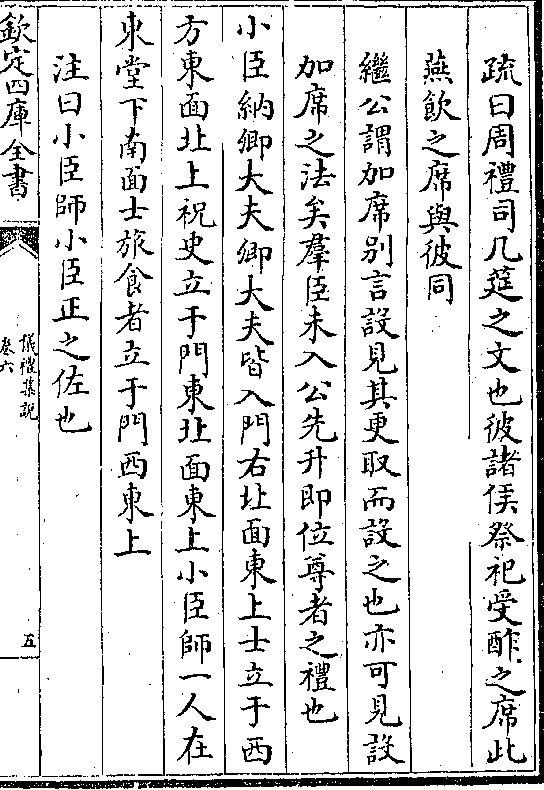 疏曰周禮司几筵之文也彼諸侯祭祀受酢之席此
燕飲之席與彼同
繼公謂加席别言設見其更取而設之也亦可見設
加席之法矣羣臣未入公先升即位尊者之禮也
小臣納卿大夫卿大夫皆入門右北面東上士立于西
方東面北上祝史立于門東北面東上小臣師一人在
東堂下南面士旅食者立于門西東上
注曰小臣師小臣正之佐也
欽定四庫全書
儀禮集說
卷六
五